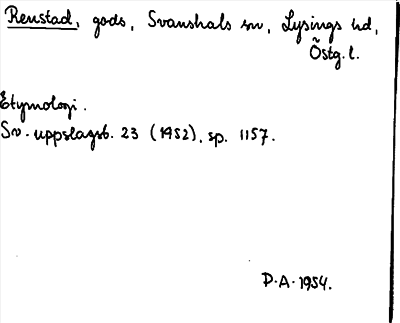 Renstad, gods, Svanshals sn, Lysings hd,
Östg. l.
Etymologi.
Sv. uppslagsb. 23 (1952), sp. 1157.
D.A. 1954.